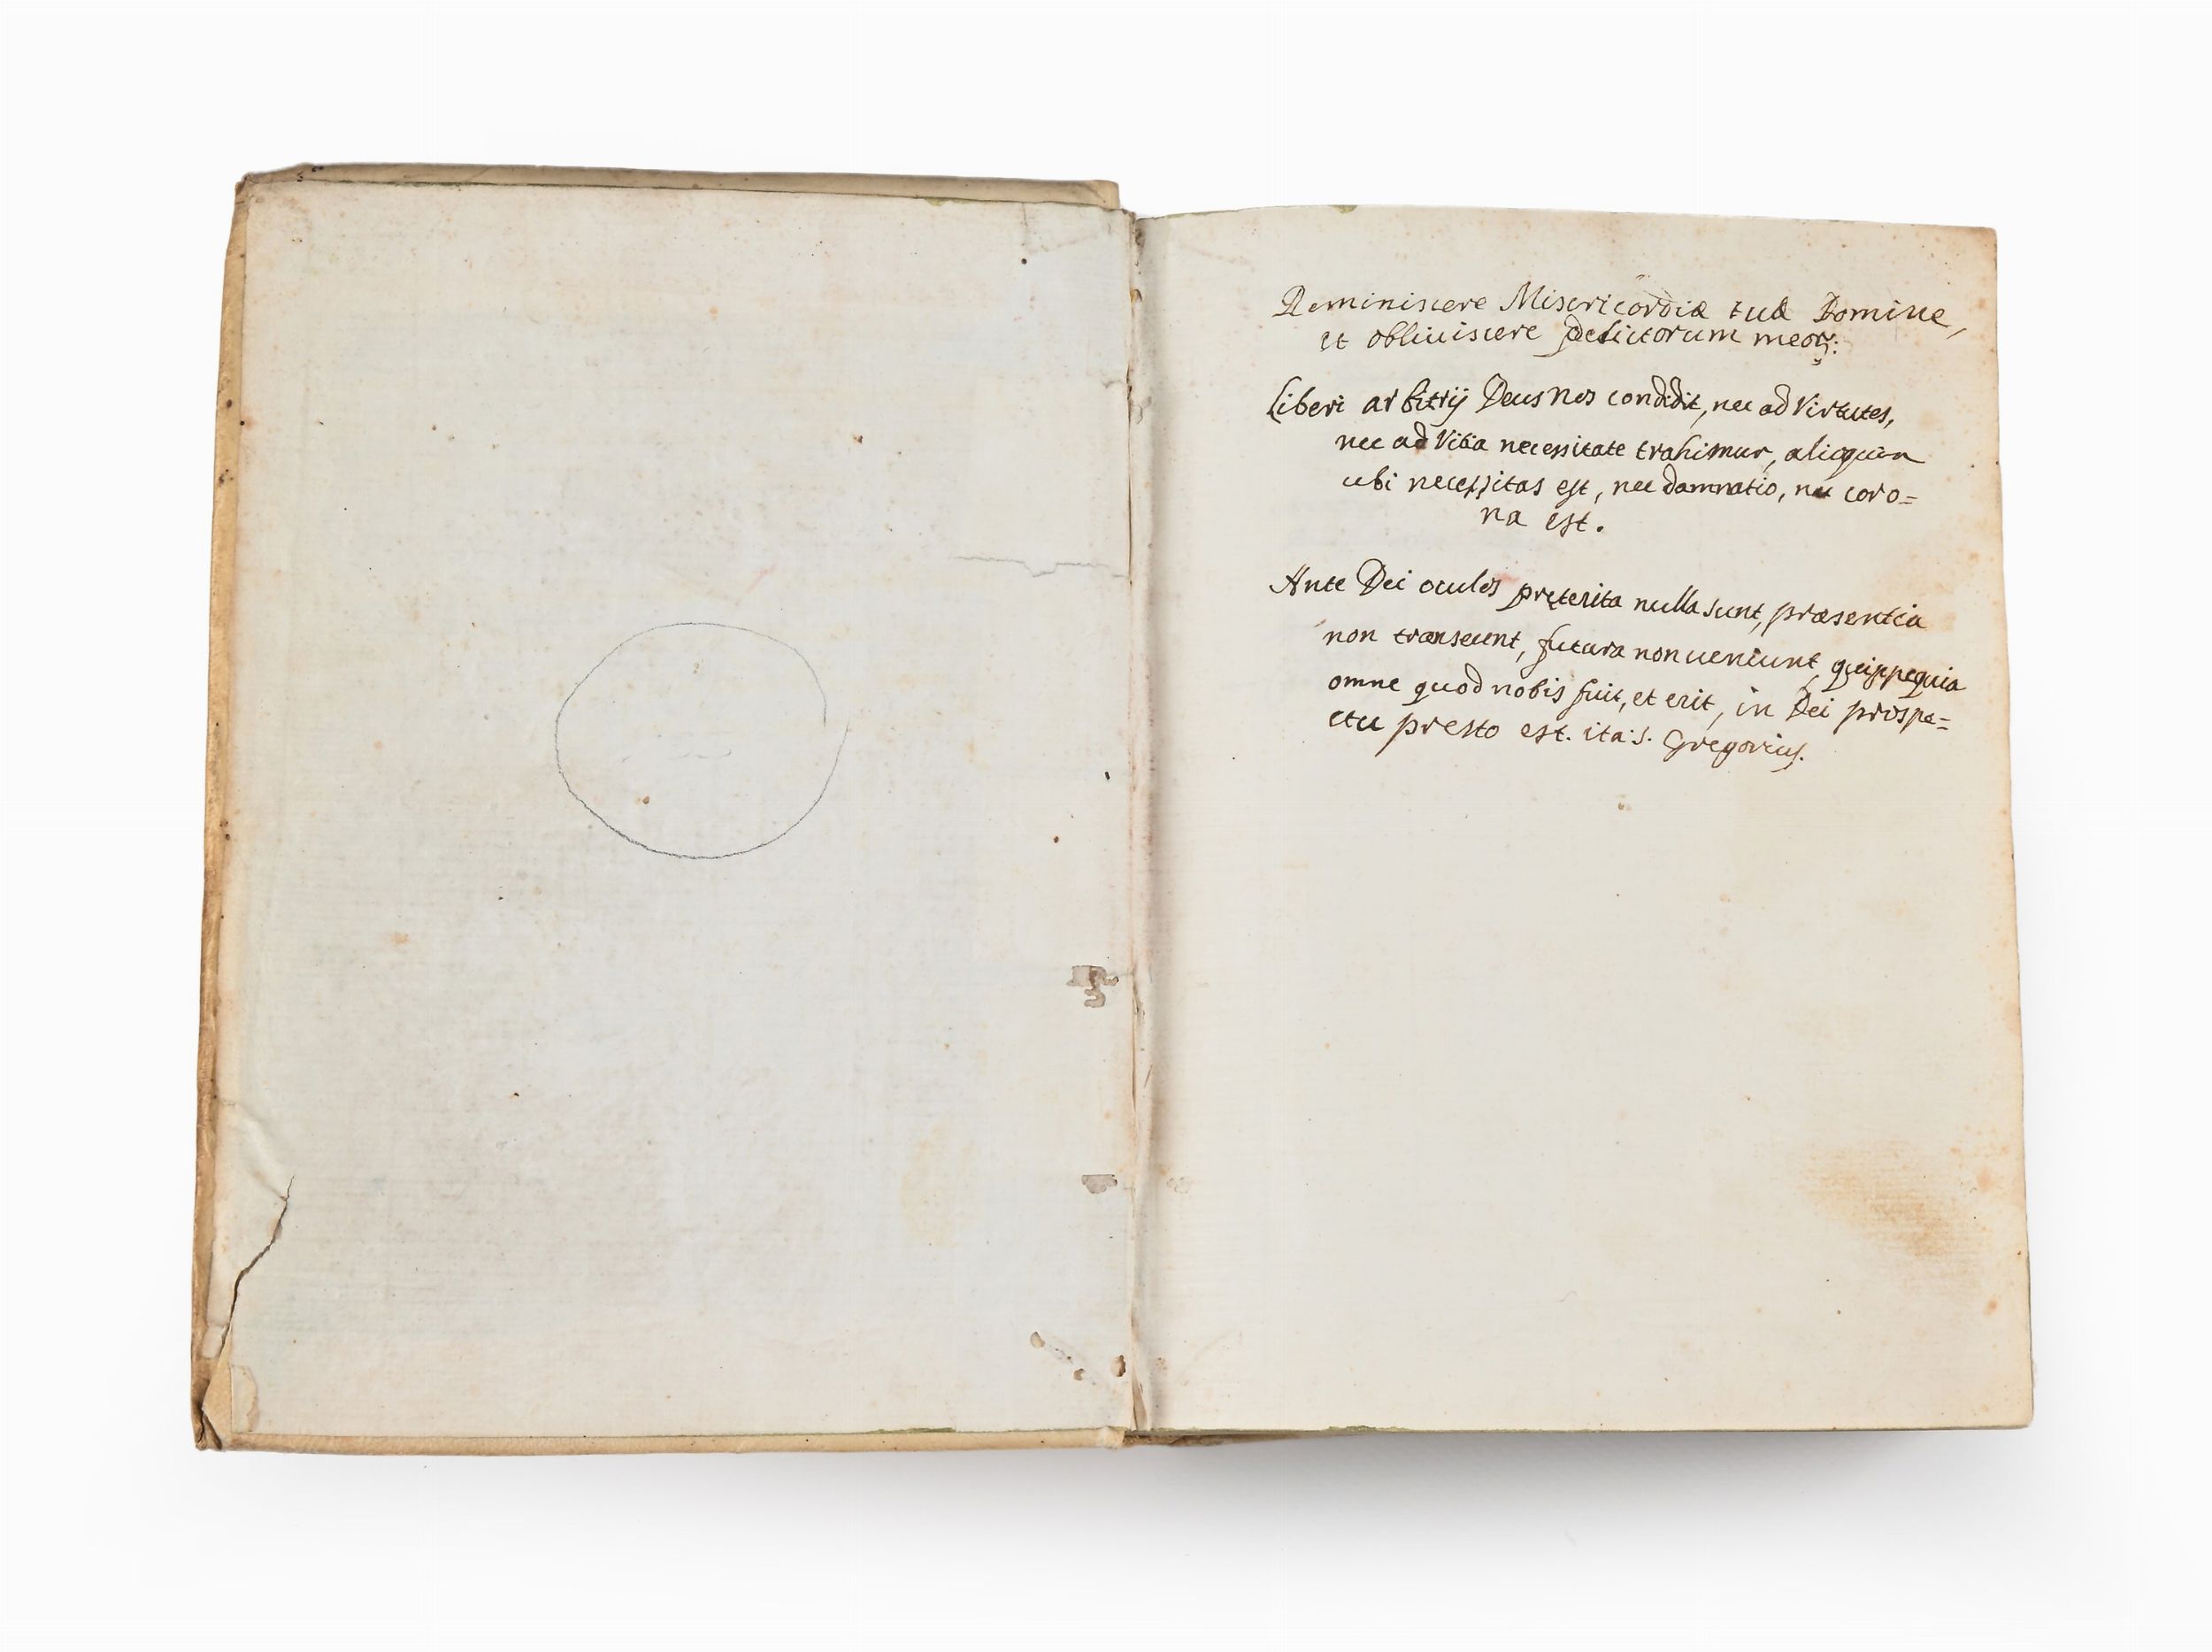 Reminiscere Misericordiæ tuæ Domine,
et obliuiscere delictorum meoꝝ:
Liberi arbitrij Deus nos condidit, nec ad Virtutes,
nec ad Vitia necessitate trahimur, alioquin
ubi necessitas est, nec damnatio, nec coro=
na est.
Ante Dei oculos pręterita nulla sunt, præsentia
non transeunt, futura non ueniunt quippe quia
omne quod nobis fuit, et erit, in Dei prospe=
ctu presto est. ita S. Gregorius.